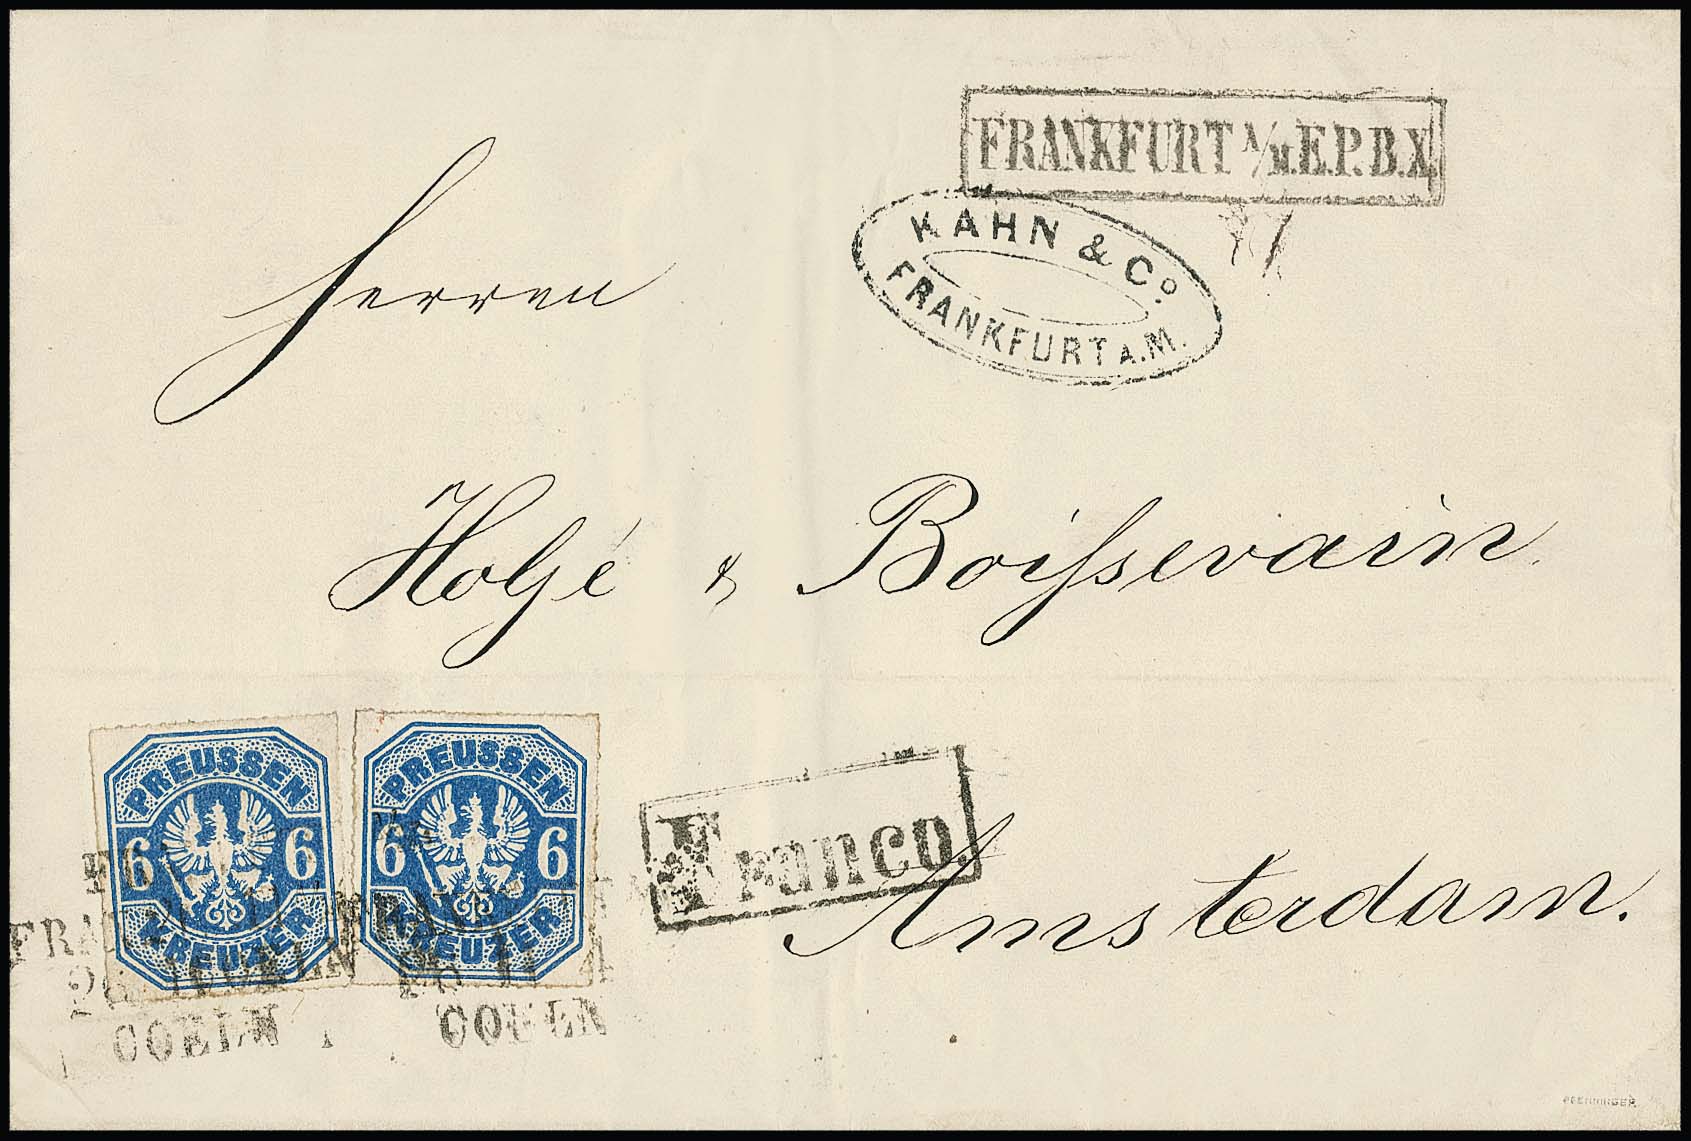 FRANKFURT A/M. E.P.B.X.
KAHN & Co.
FRANKFURT A.M.
Herren
Holjé & Boissevain
PREUSSEN
6 6
KREUZER
PREUSSEN
6 6
KREUZER
Franco.
Amsterdam.
COELN
COELN
PFENNINGER